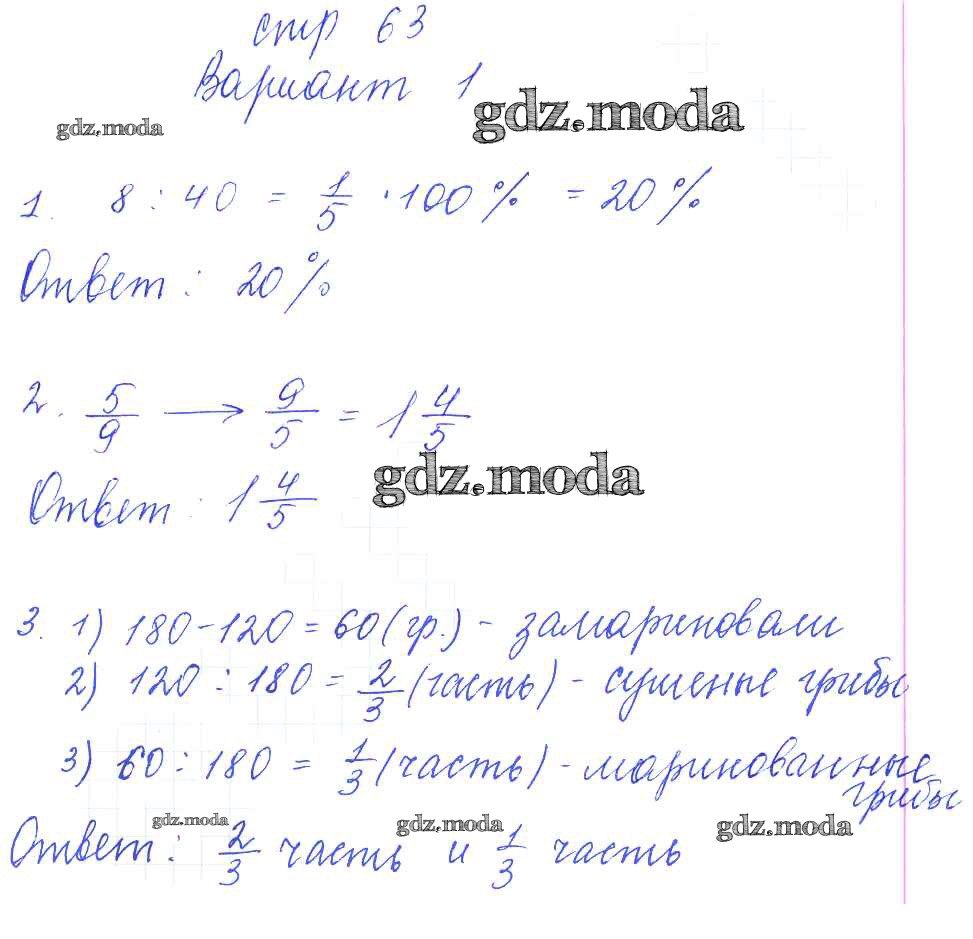 стр 63
Вариант 1
gdz.moda
gdz.moda
1. 8 : 40 = 1/5 · 100% = 20%
Ответ: 20%
2. 5/9 → 9/5 = 1 4/5
gdz.moda
Ответ: 1 4/5
3. 1) 180 - 120 = 60 (гр.) - замариновали
2) 120 : 180 = 2/3 (часть) - сушеные грибы
3) 60 : 180 = 1/3 (часть) - маринованные
грибы
gdz.moda
gdz.moda
gdz.moda
Ответ: 2/3 часть и 1/3 часть